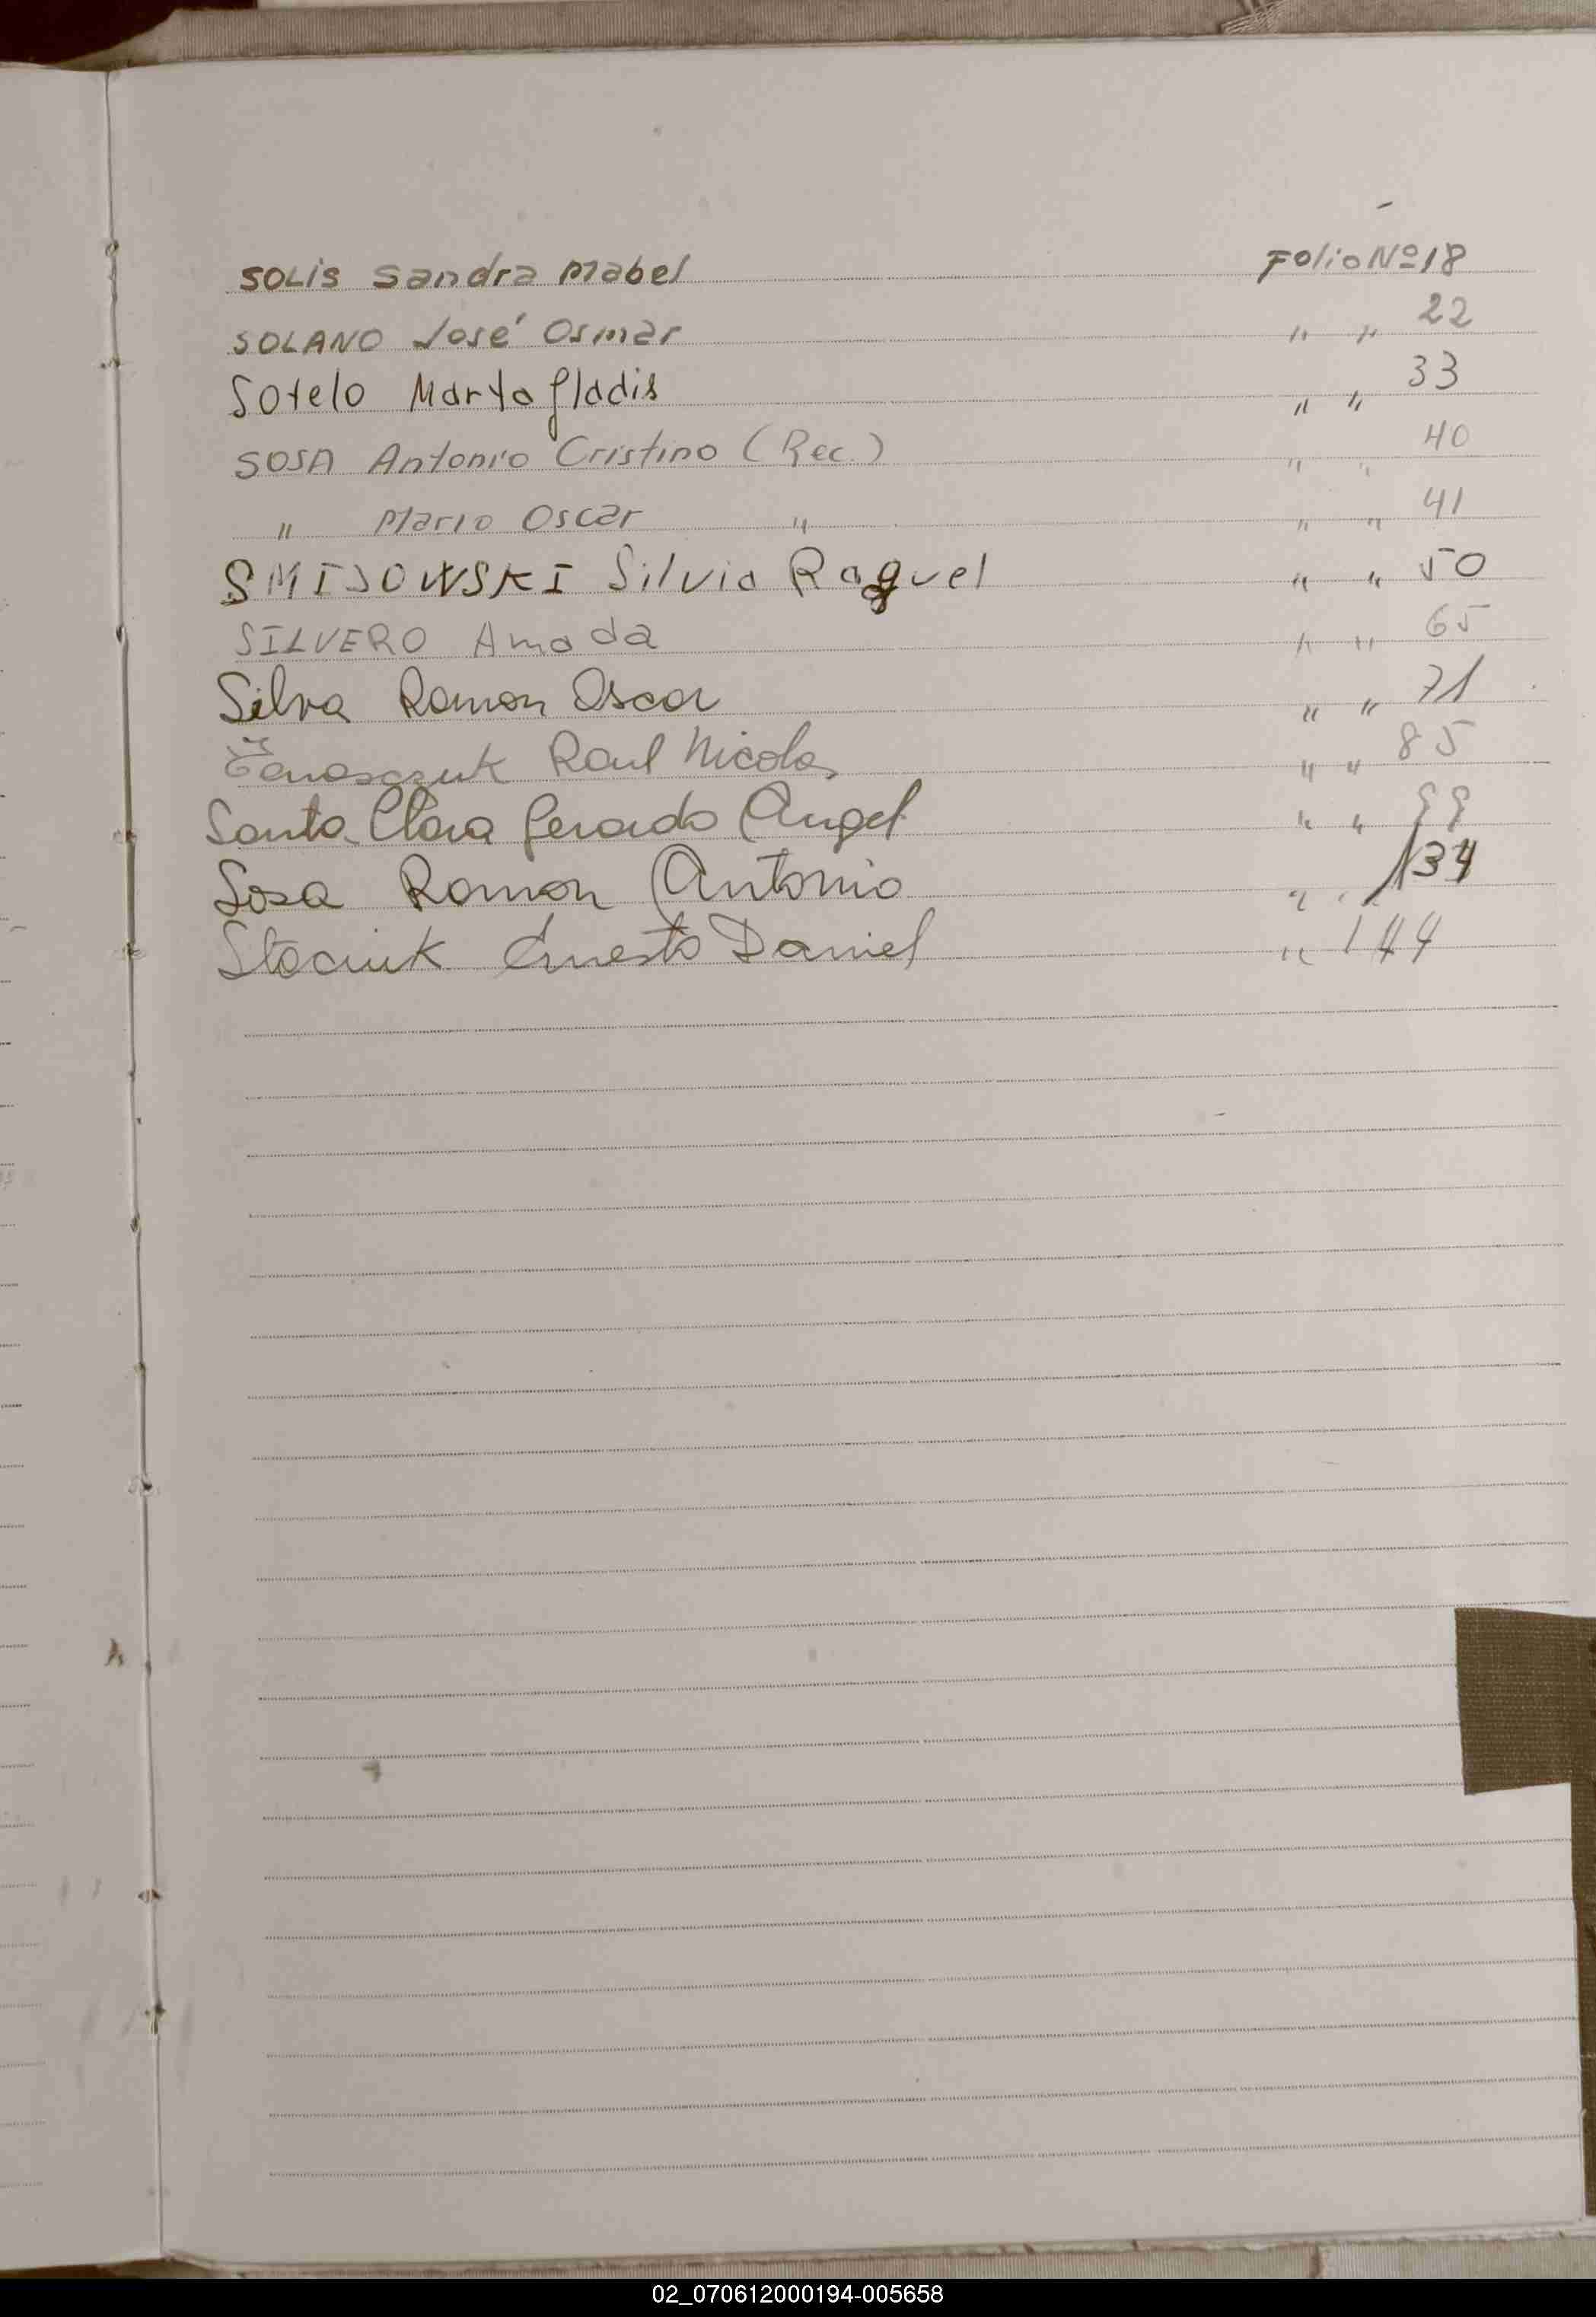 SOLIS Sandra Mabel Folio Nº 18
SOLANO José Osmar " " 22
Sotelo Marta Gladis " " 33
SOSA Antonio Cristino (Rec.) " " 40
" Mario Oscar " " " 41
SMISOWSKI Silvia Raquel " " 50
SILVERO Amada " " 65
Silva Ramon Oscar " " 71
Raul Nicolas " " 85
Santa Clara Gerardo Angel " " 99
Sosa Ramon Antonio " " 134
Ernesto Daniel " 144
02_070612000194-005658